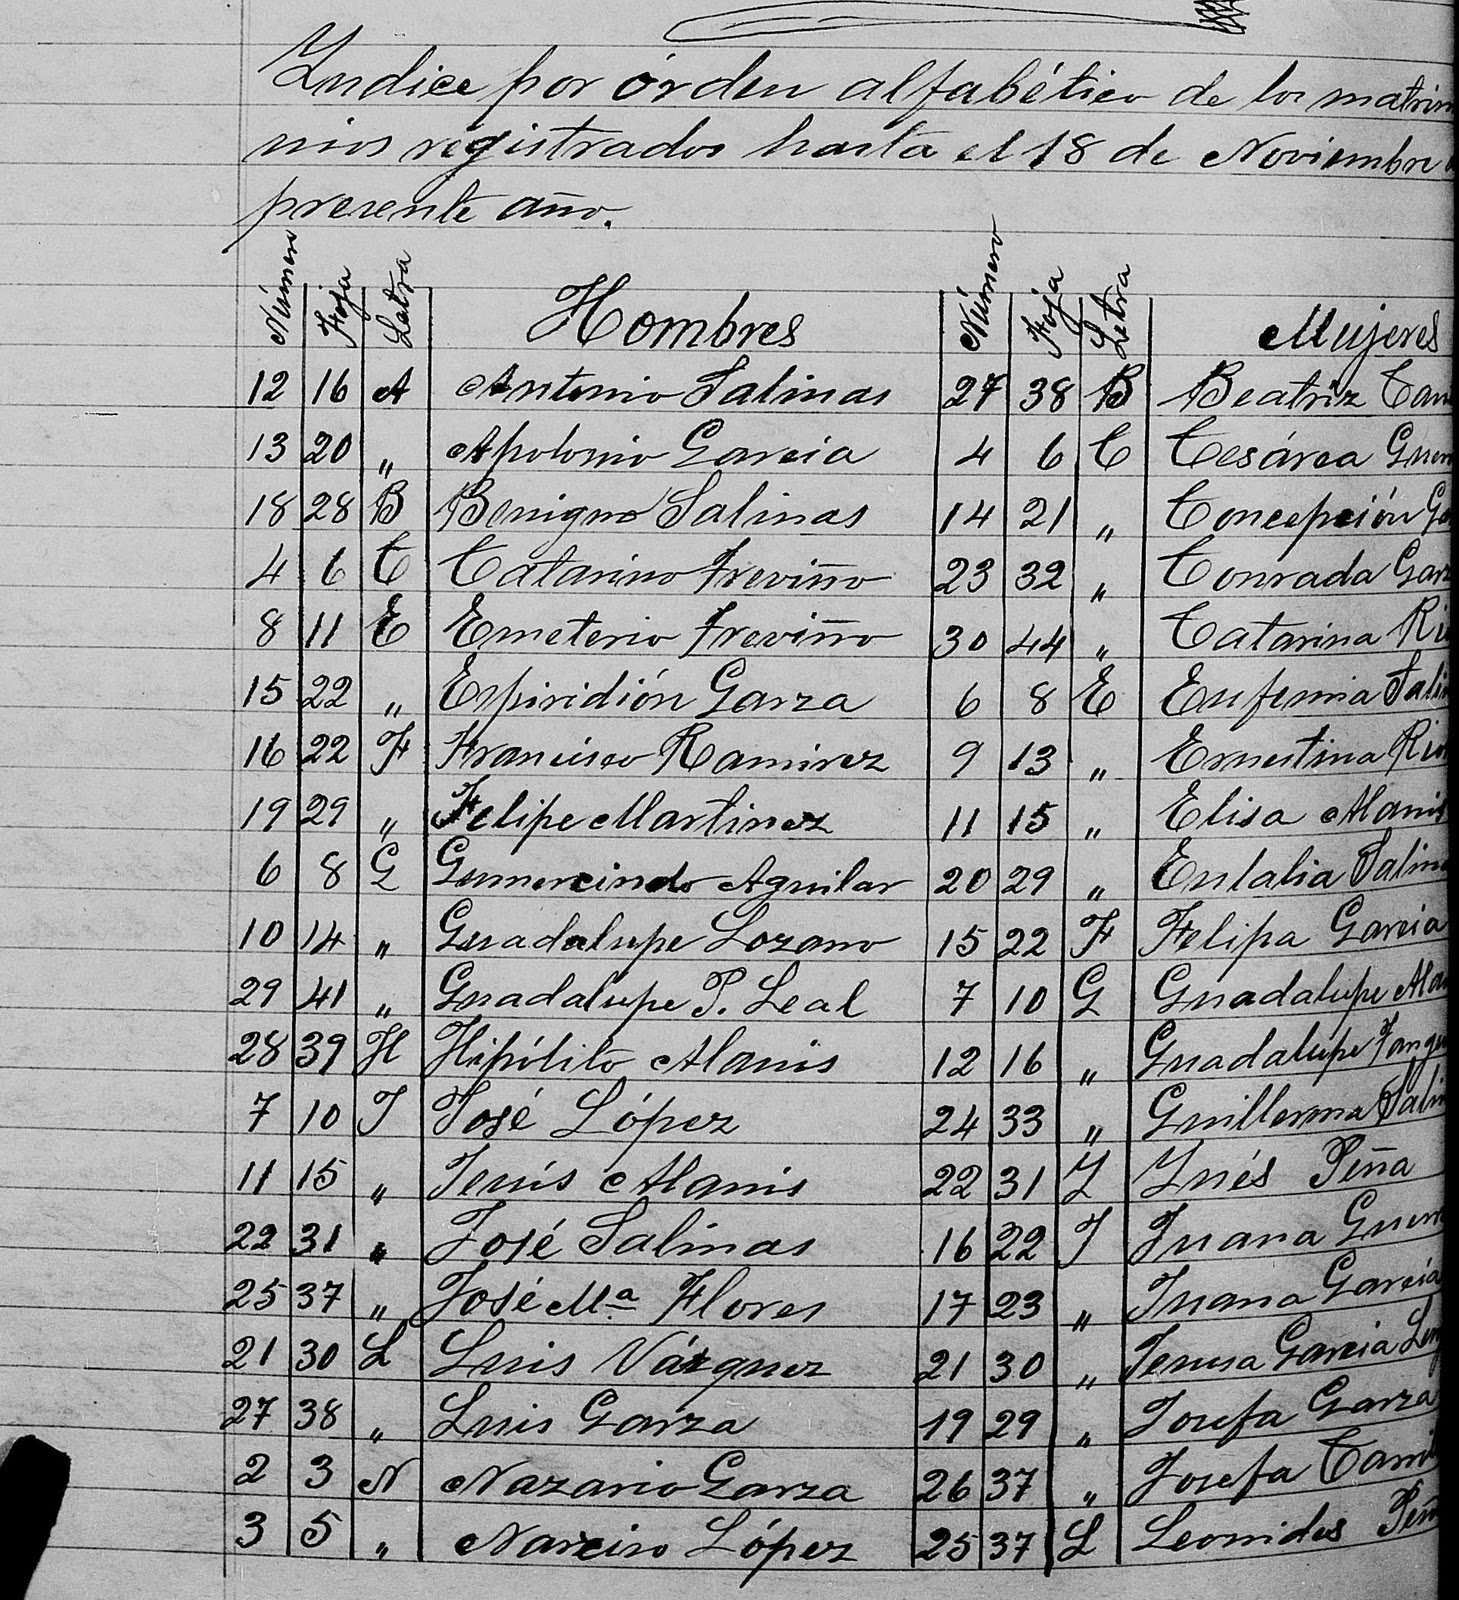 Yndice por órden alfabético de los matrim
nios registrados hasta el 18 de Noviembre
presente año.
Número Foja Letra Hombres Número Foja Letra Mujeres
12 16 A Antonio Salinas 27 38 B Beatriz
13 20 „ Apolonio Garcia 4 6 C Cesárea Guer
18 28 B Benigno Salinas 14 21 „ Concepción
4 6 C Catarino Treviño 23 32 „ Conrada Garz
8 11 E Emeterio Treviño 30 44 „ Catarina
15 22 „ Espiridión Garza 6 8 E Eufemia Salin
16 22 F Francisco Ramirez 9 13 „ Ernestina
19 29 „ Felipe Martinez 11 15 „ Elisa Alanis
6 8 G Gumercindo Aguilar 20 29 „ Eulalia Salin
10 14 „ Guadalupe Lozano 15 22 F Felipa Garcia
29 41 „ Guadalupe P. Leal 7 10 G Guadalupe Alan
28 39 H Hipólito Alanis 12 16 „ Guadalupe
7 10 J José López 24 33 „ Guillerma Salin
11 15 „ Jesús Alanis 22 31 Y Ynés Peña
22 31 „ José Salinas 16 22 J Juana Guerr
25 37 „ José Ma Flores 17 23 „ Juana Garcia
21 30 L Luis Vázquez 21 30 „ Jesusa Garcia
27 38 „ Luis Garza 19 29 „ Josefa Garza
2 3 N Nazario Garza 26 37 „ Josefa
3 5 „ Narciso López 25 37 L Leonides Peñ